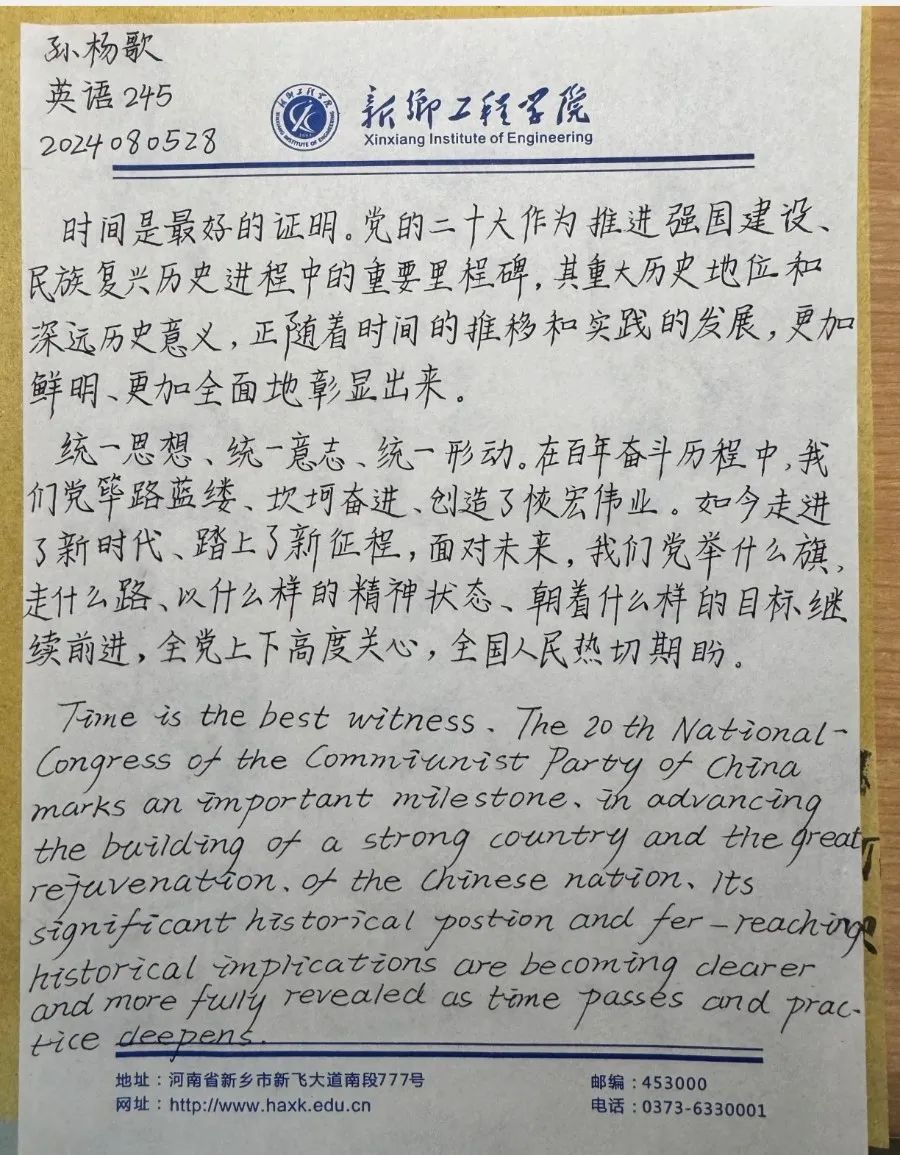 孙杨歌
英语245
2024080528
新乡工程学院
Xinxiang Institute of Engineering
时间是最好的证明。党的二十大作为推进强国建设、
民族复兴历史进程中的重要里程碑，其重大历史地位和
深远历史意义，正随着时间的推移和实践的发展，更加
鲜明、更加全面地彰显出来。
统一思想、统一意志、统一形动。在百年奋斗历程中，我
们党筚路蓝缕、坎坷奋进、创造了恢宏伟业。如今走进
了新时代、踏上了新征程，面对未来，我们党举什么旗，
走什么路、以什么样的精神状态、朝着什么样的目标继
续前进，全党上下高度关心，全国人民热切期盼。
Time is the best witness. The 20th National-
Congress of the Commiunist Party of China
marks an important milestone. in advancing
the building of a strong country and the great
rejuvenation. of the Chinese nation. Its
significant historical postion and fer-reaching
historical implications are becoming clearer
and more fully revealed as time passes and prac-
tice deepens.
地址：河南省新乡市新飞大道南段777号
邮编：453000
网址：http://www.haxk.edu.cn
电话：0373-6330001